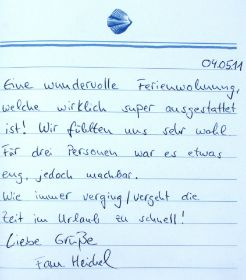 04.05.11
Eine wundervolle Ferienwohnung,
welche wirklich super ausgestattet
ist! Wir fühlten uns sehr wohl
Für drei Personen war es etwas
eng, jedoch machbar.
Wie immer verging/vergeht die
Zeit im Urlaub zu schnell!
Liebe Grüße
Fam. Heidel